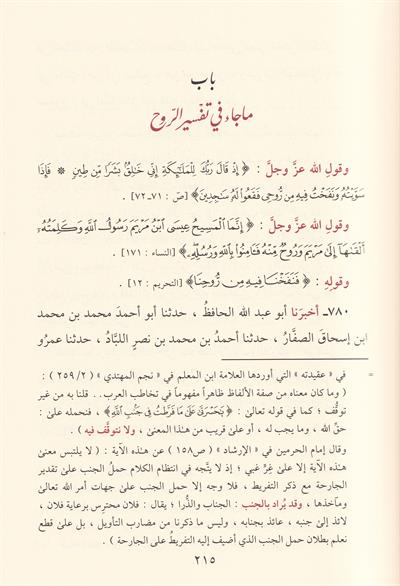 باب
ماجاء في تفسير الرّوح
وقولِ الله عزَّ وجلَّ : ﴿ إِذْ قَالَ رَبُّكَ لِلْمَلَٰٓئِكَةِ إِنِّي خَٰلِقٌۢ بَشَرًا مِّن طِينٍ ۞ فَإِذَا
سَوَّيْتُهُۥ وَنَفَخْتُ فِيهِ مِن رُّوحِي فَقَعُوا۟ لَهُۥ سَٰجِدِينَ﴾ [صٓ : ٧١-٧٢] .
وقولِ الله عزَّ وجلَّ : ﴿ إِنَّمَا ٱلْمَسِيحُ عِيسَى ٱبْنُ مَرْيَمَ رَسُولُ ٱللَّهِ وَكَلِمَتُهُۥٓ
أَلْقَىٰهَآ إِلَىٰ مَرْيَمَ وَرُوحٌ مِّنْهُ فَـَٔامِنُوا۟ بِٱللَّهِ وَرُسُلِهِۦ﴾ [النساء : ١٧١] .
وقولِهِ : ﴿ فَنَفَخْنَا فِيهِ مِن رُّوحِنَا﴾ [التحريم : ١٢] .
٧٨٠ـ أخبرَنا أبو عبد الله الحافظُ ، حدثنا أبو أحمدَ محمد بن محمد
ابن إسحاقَ الصفَّارُ ، حدثنا أحمدُ بن محمد بن نصرٍ اللبَّادُ ، حدثنا عمرُو
= في « عقيدته » التي أوردها العلامة ابن المعلم في « نجم المهتدي » ( ٢/ ٢٥٩ ) :
( وما كان معناه من صفة الألفاظ ظاهراً مفهوماً في تخاطب العرب.. قلنا به من غير
توقُّف ؛ كما في قوله تعالىٰ : ﴿ بَحَسْرَتَىٰ عَلَىٰ مَا فَرَّطتُ فِي جَنۢبِ ٱللَّهِ﴾ ، فنحمله علىٰ :
حقِّ الله ، وما يجب له ، أو علىٰ قريب من هذا المعنىٰ ، ولا نتوقَّف فيه ) .
وقال إمام الحرمين في « الإرشاد » ( ص١٥٨ ) عن هذه الآية : ( لا يلتبس معنىٰ
هذه الآية إلا علىٰ غِرٍّ غبي ؛ إذ لا يتَّجه في انتظام الكلام حملُ الجنب علىٰ تقدير
الجارحة مع ذكر التفريط ، فلا وجه إلا حمل الجنب علىٰ جهات أمر الله تعالىٰ
ومآخذها ، وقد يُراد بالجنب : الجناب والذُّرا ؛ يقال : فلان محترس برعاية فلان ،
لائذ إلىٰ جنبه ، عائذ بجنابه ، وليس ما ذكرنا من مضارب التأويل ، بل علىٰ قطعٍ
نعلم بطلان حمل الجنب الذي أضيف إليه التفريطُ على الجارحة ) .
٢١٥